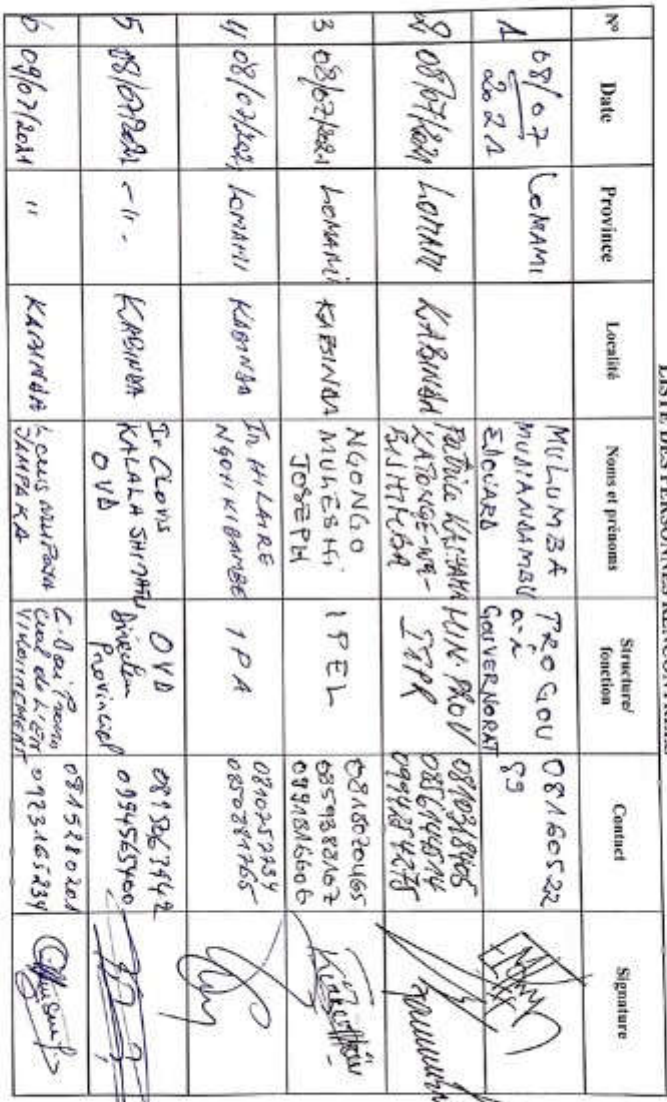 LISTE DES PERSONNES RENCONTREES
N° Date Province Localité Noms et prénoms Structure/ fonction Contact Signature
1 08/07 2021 LOMAMI MULUMBA MUDIANDAMBU EDOUARD PROGOU GOUVERNORAT 08160522 89
2 08/07/2021 LOMAMI KABINDA Patrice KATONGE-WA- MIN. PROV ITPR 0810318405
3 08/07/2021 LOMAMI KABINDA NGONGO MULESHI JOSEPH IPEL 0818020465 0859388167 0991816606
4 08/07/2021 LOMAMI KABINDA Ir HILAIRE NGOYI KIBAMBE IPA 0810257734 0850281765
5 08/07/2021 -11- KABINDA Ir Clovis KALALA OVD OVD Directeur Provincial 0994565400
6 09/07/2021 11 KABINDA LOUIS JAMPAKA 0815280201 0923165234